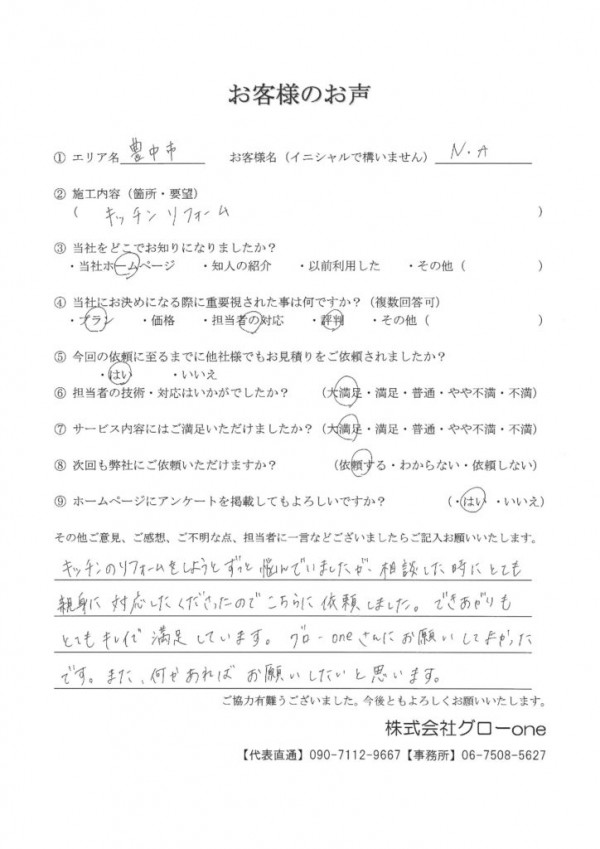 お客様のお声
① エリア名 豊中市 お客様名（イニシャルで構いません） N.A
② 施工内容（箇所・要望）
（ キッチンリフォーム ）
③ 当社をどこでお知りになりましたか？
・当社ホームページ ・知人の紹介 ・以前利用した ・その他（ ）
④ 当社にお決めになる際に重要視された事は何ですか？（複数回答可）
・プラン ・価格 ・担当者の対応 ・評判 ・その他（ ）
⑤ 今回の依頼に至るまでに他社様でもお見積りをご依頼されましたか？
・はい ・いいえ
⑥ 担当者の技術・対応はいかがでしたか？ （大満足・満足・普通・やや不満・不満）
⑦ サービス内容にはご満足いただけましたか？（大満足・満足・普通・やや不満・不満）
⑧ 次回も弊社にご依頼いただけますか？ （依頼する・わからない・依頼しない）
⑨ ホームページにアンケートを掲載してもよろしいですか？ （・はい・いいえ）
その他ご意見、ご感想、ご不明な点、担当者に一言などございましたらご記入お願いいたします。
キッチンのリフォームをしようとずっと悩んでいましたが、相談した時にとても
親身に対応したくださったのでこちらに依頼しました。できあがりも
とてもキレイで満足しています。グローoneさんにお願いしてよかった
です。また、何かあればお願いしたいと思います。
ご協力有難うございました。今後ともよろしくお願いいたします。
株式会社グローone
【代表直通】090-7112-9667【事務所】06-7508-5627